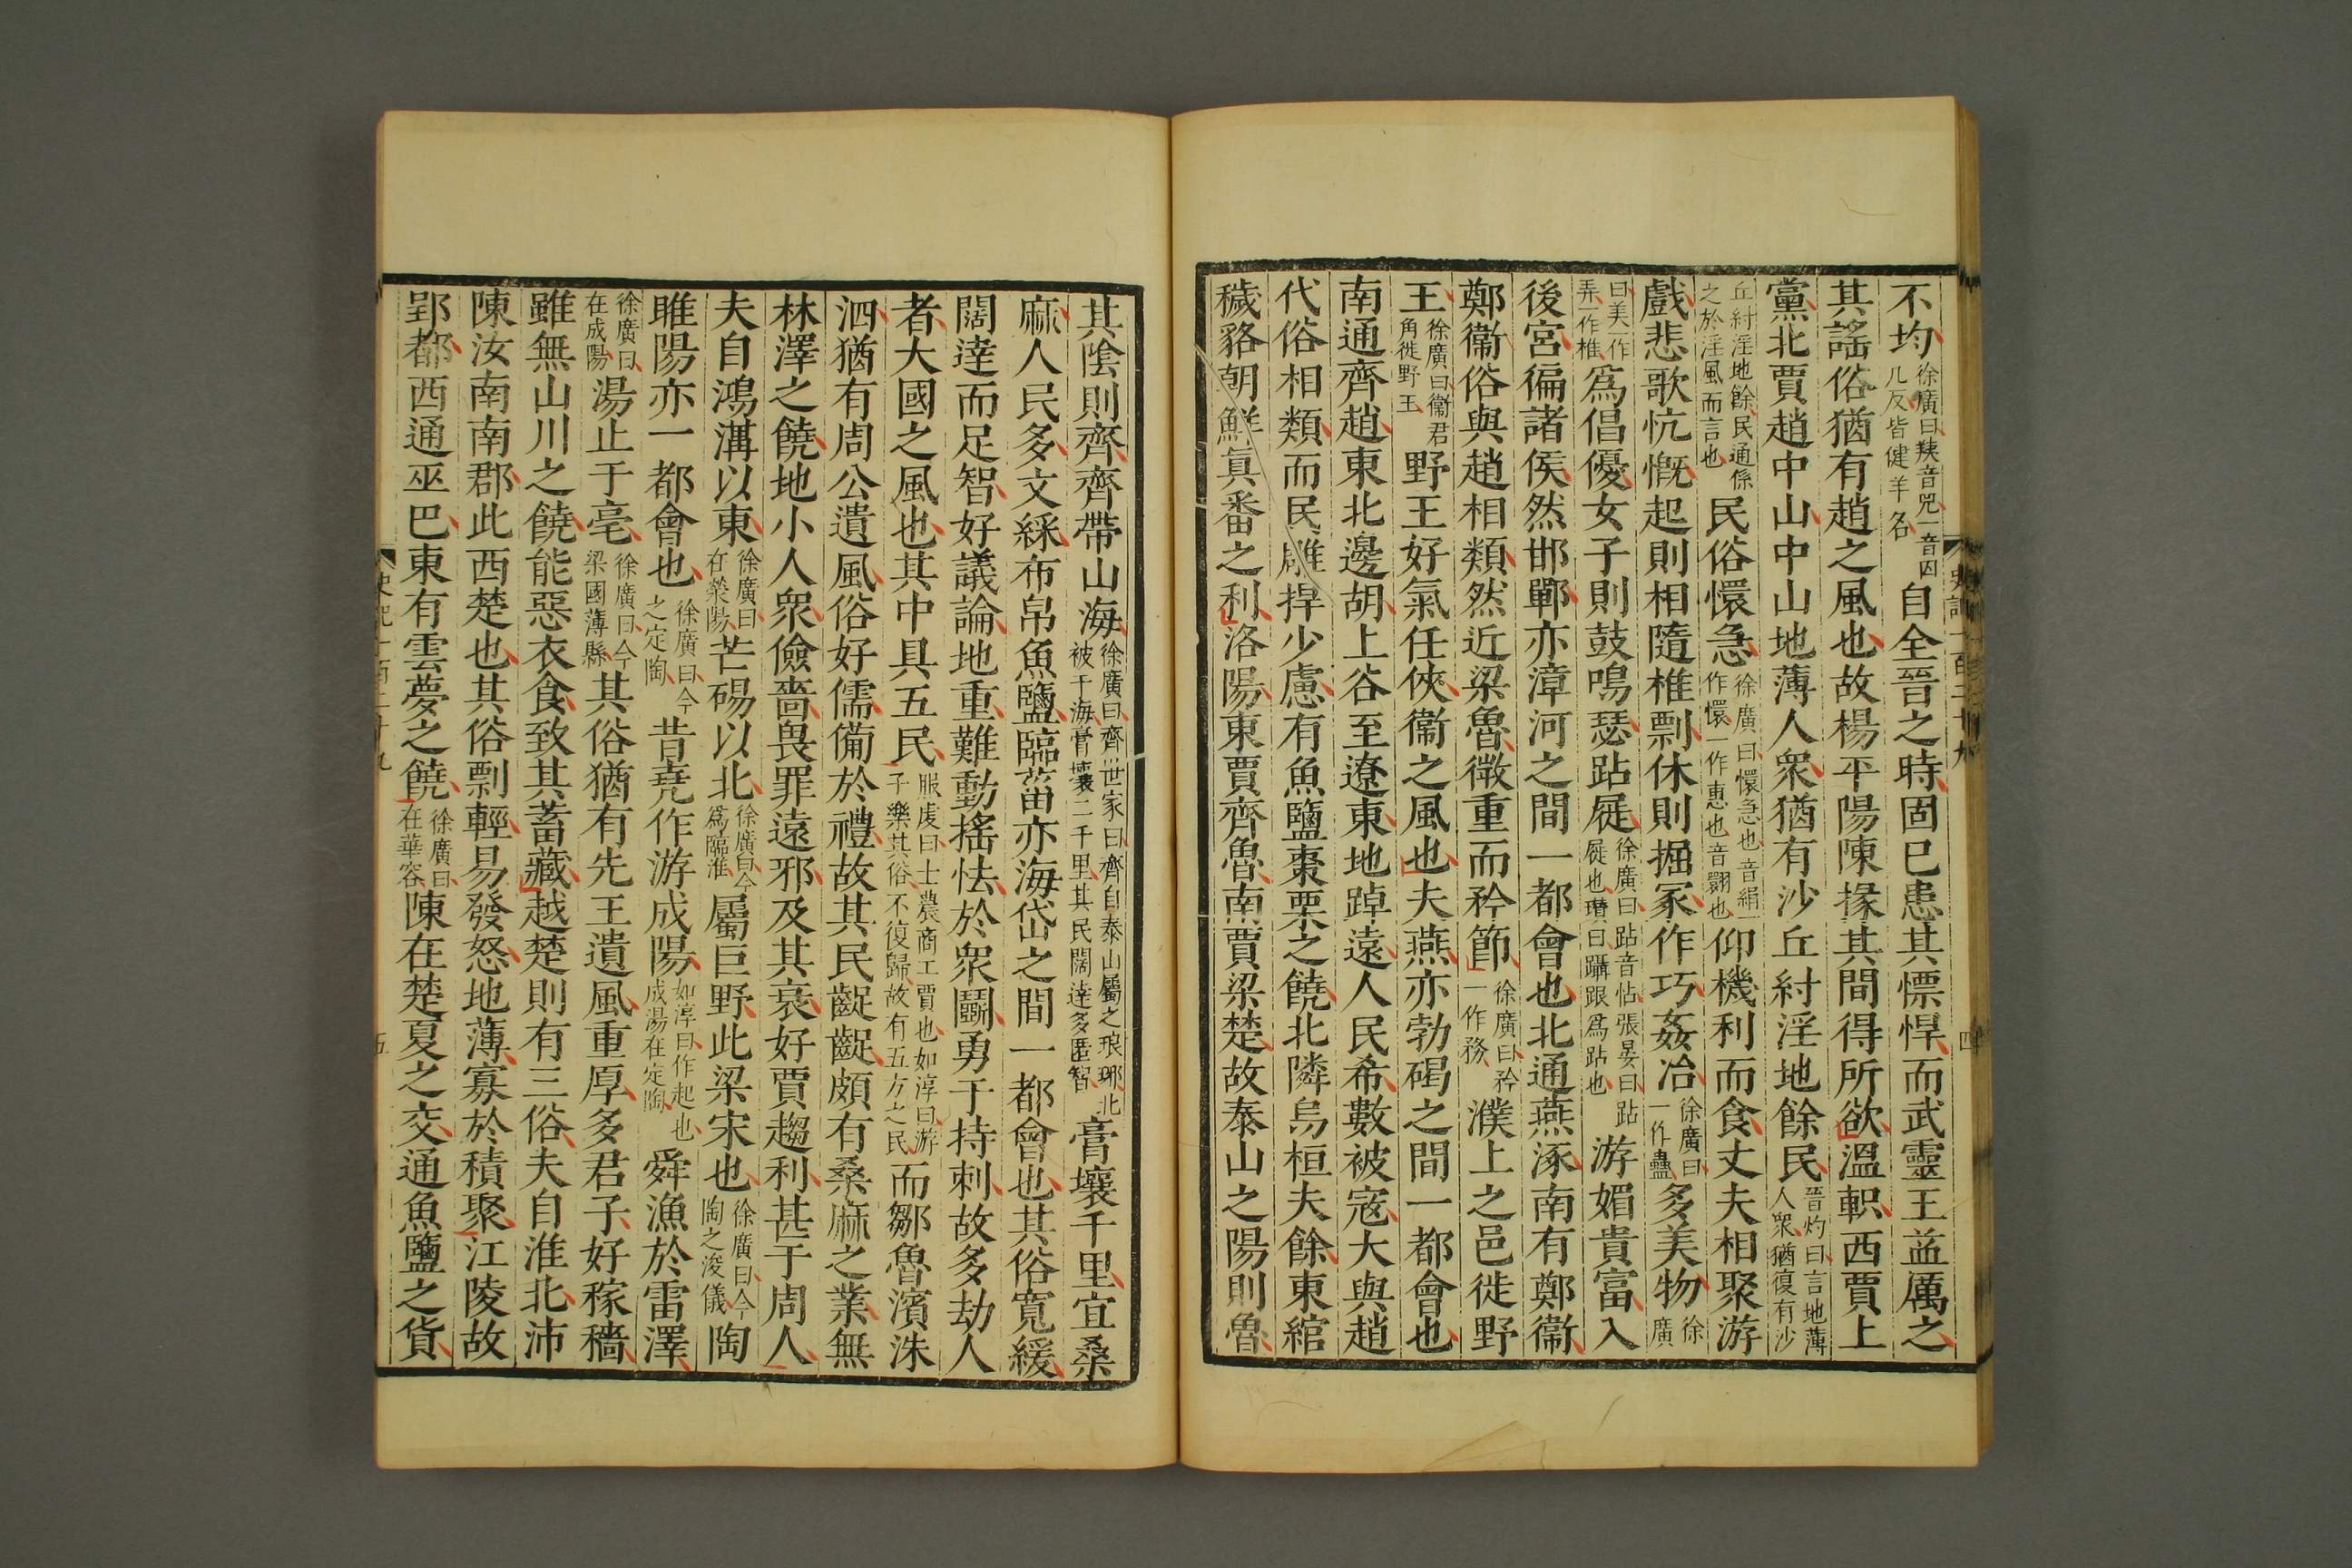 不均徐廣曰羠音兕一音囚几反皆健羊名自全晉之時固已患其慓悍而武靈王益厲之
其謠俗猶有趙之風也故楊平陽陳掾其間得所欲溫軹西賈上
黨北賈趙中山中山地薄人衆猶有沙丘紂淫地餘民晉灼曰言地薄人衆猶復有沙
丘紂淫地餘民通係之於淫風而言也民俗懁急徐廣曰懁急也音絹一作懁一作惠也音翾也仰機利而食丈夫相聚游
戲悲歌忼慨起則相隨椎剽休則掘冢作巧姦冶徐廣曰一作蠱多美物徐廣
曰美一作弄一作椎爲倡優女子則鼓鳴瑟跕屣徐廣曰跕音帖張晏曰跕屣也瓚曰躡跟爲跕也游媚貴富入
後宮徧諸侯然邯鄲亦漳河之間一都會也北通燕涿南有鄭衞
鄭衞俗與趙相類然近梁魯微重而矜節徐廣曰矜一作務濮上之邑徙野
王徐廣曰衞君角徙野王野王好氣任俠衞之風也夫燕亦勃碣之間一都會也
南通齊趙東北邊胡上谷至遼東地踔遠人民希數被寇大與趙
代俗相類而民雕捍少慮有魚鹽棗栗之饒北隣烏桓夫餘東綰
穢貉朝鮮眞番之利洛陽東賈齊魯南賈梁楚故泰山之陽則魯
史記一百二十九
四
其陰則齊齊帶山海徐廣曰齊世家曰齊自泰山屬之琅琊北被于海膏壤二千里其民闊達多匿智膏壤千里宜桑
麻人民多文綵布帛魚鹽臨菑亦海岱之間一都會也其俗寬緩
闊達而足智好議論地重難動搖怯於衆鬭勇于持刺故多劫人
者大國之風也其中具五民服虔曰士農商工賈也如淳曰游子樂其俗不復歸故有五方之民而鄒魯濱洙
泗猶有周公遺風俗好儒備於禮故其民齪齪頗有桑麻之業無
林澤之饒地小人衆儉嗇畏罪遠邪及其衰好賈趨利甚于周人
夫自鴻溝以東徐廣曰在滎陽芒碭以北徐廣曰今爲臨淮屬巨野此梁宋也徐廣曰今陶之浚儀陶
睢陽亦一都會也徐廣曰今之定陶昔堯作游成陽如淳曰作起也成湯在定陶舜漁於雷澤
徐廣曰在成陽湯止于亳徐廣曰今梁國薄縣其俗猶有先王遺風重厚多君子好稼穡
雖無山川之饒能惡衣食致其蓄藏越楚則有三俗夫自淮北沛
陳汝南南郡此西楚也其俗剽輕易發怒地薄寡於積聚江陵故
郢都西通巫巴東有雲夢之饒徐廣曰在華容陳在楚夏之交通魚鹽之貨
史記一百二十九
五